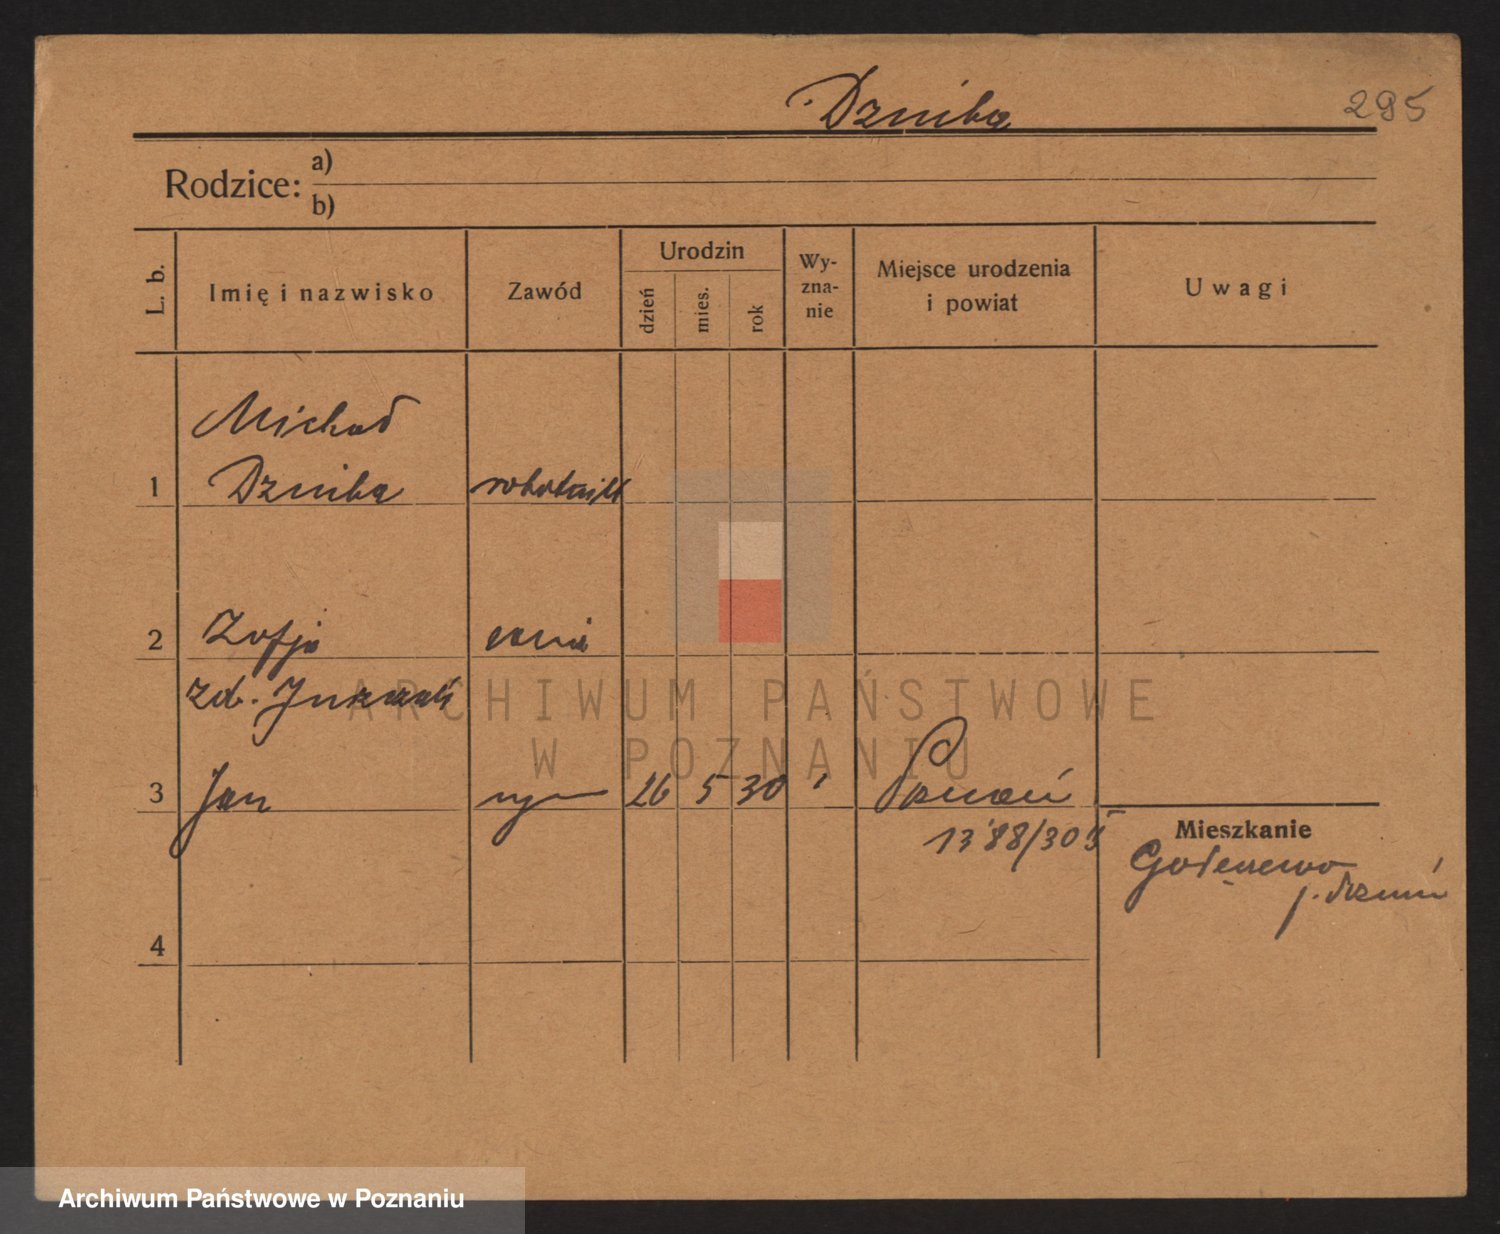 Dzniba
295
Rodzice: a)
b)
L. b.
Imię i nazwisko
Zawód
Urodzin
dzień
mies.
rok
Wy-
zna-
nie
Miejsce urodzenia
i powiat
Uwagi
Michał
1 Dzniba robotnik
2 Zofja
zd.
3 Jan 26 5 30 Poznań
Mieszkanie
4
ARCHIWUM PAŃSTWOWE
W POZNANIU
Archiwum Państwowe w Poznaniu